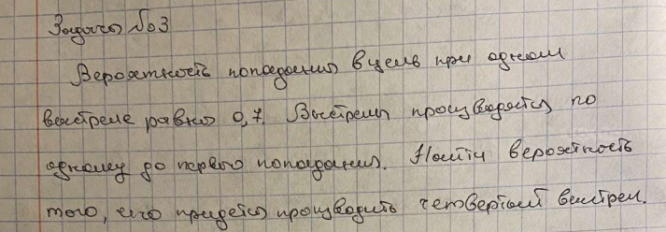 Задача №3
Вероятность попадания в цель при одном
выстреле равна 0,7. Выстрелы производятся по
одному до первого попадания. Найти вероятность
того, что придется производить четвертый выстрел.